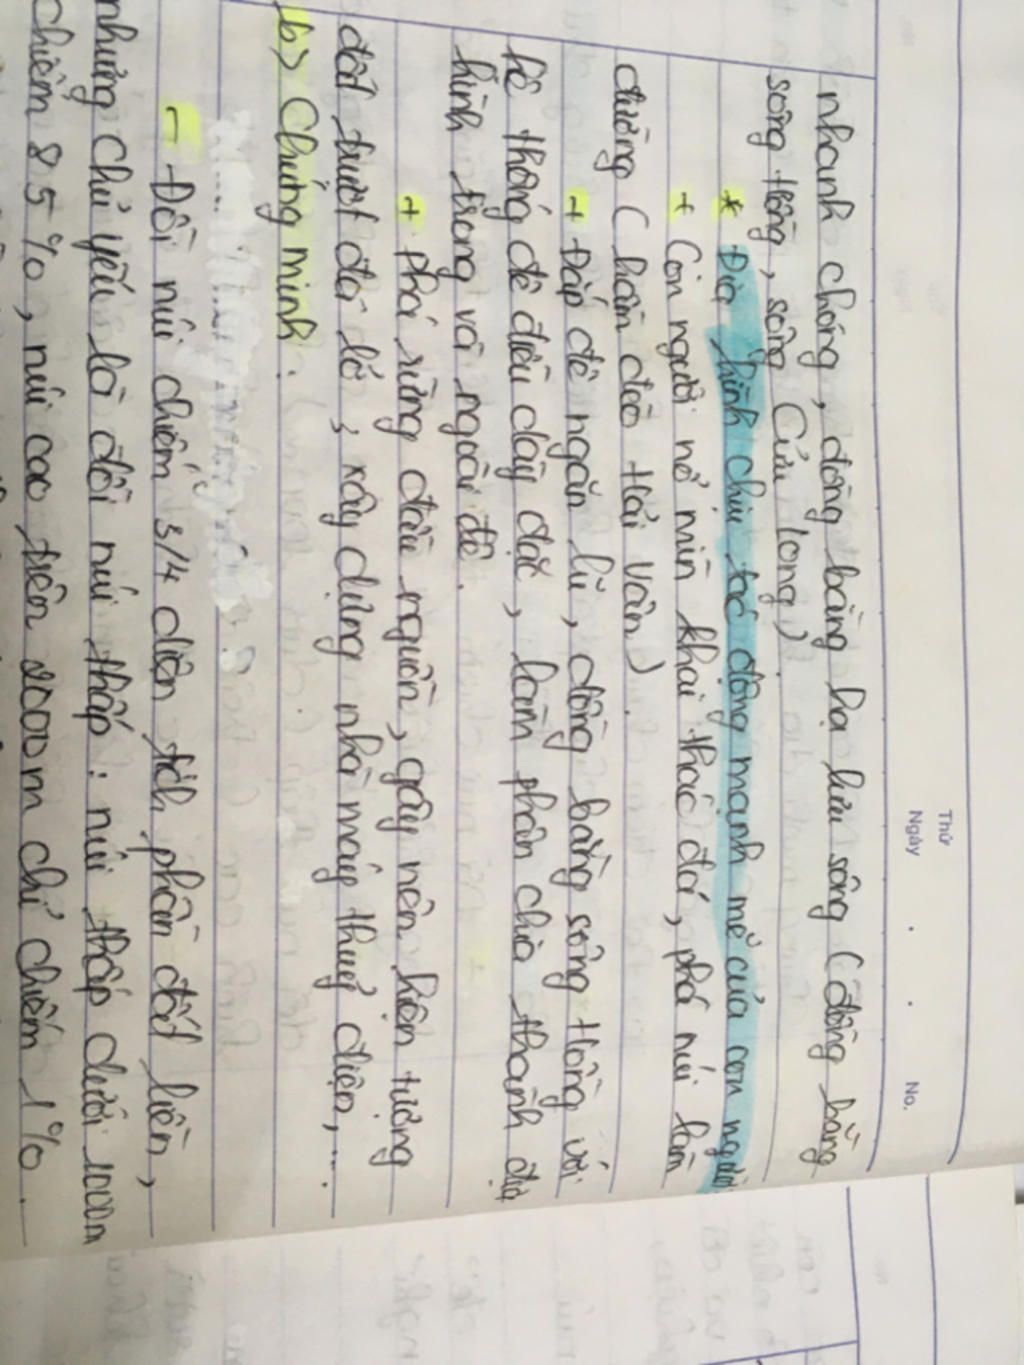 Thứ
Ngày . . No.
nhanh chóng, đồng bằng hạ lưu sông (đồng bằng
sông Hồng, sông Cửu Long).
* Địa hình chịu tác động mạnh mẽ của con người
+ Con người nổ mìn khai thác đá, phá núi làm
đường (hầm đèo Hải Vân).
+ Đắp đê ngăn lũ, đồng bằng sông Hồng với
hệ thống đê điều dày đặc, làm phân chia thành địa
hình trong và ngoài đê.
+ Phá rừng đầu nguồn, gây nên hiện tượng
đất trượt đá lở, xây dựng nhà máy thuỷ điện,...
b) Chứng minh.
- Đồi núi chiếm 3/4 diện tích phần đất liền,
nhưng chủ yếu là đồi núi thấp: núi thấp dưới 1000m
chiếm 85%, núi cao trên 2000m chỉ chiếm 1%.